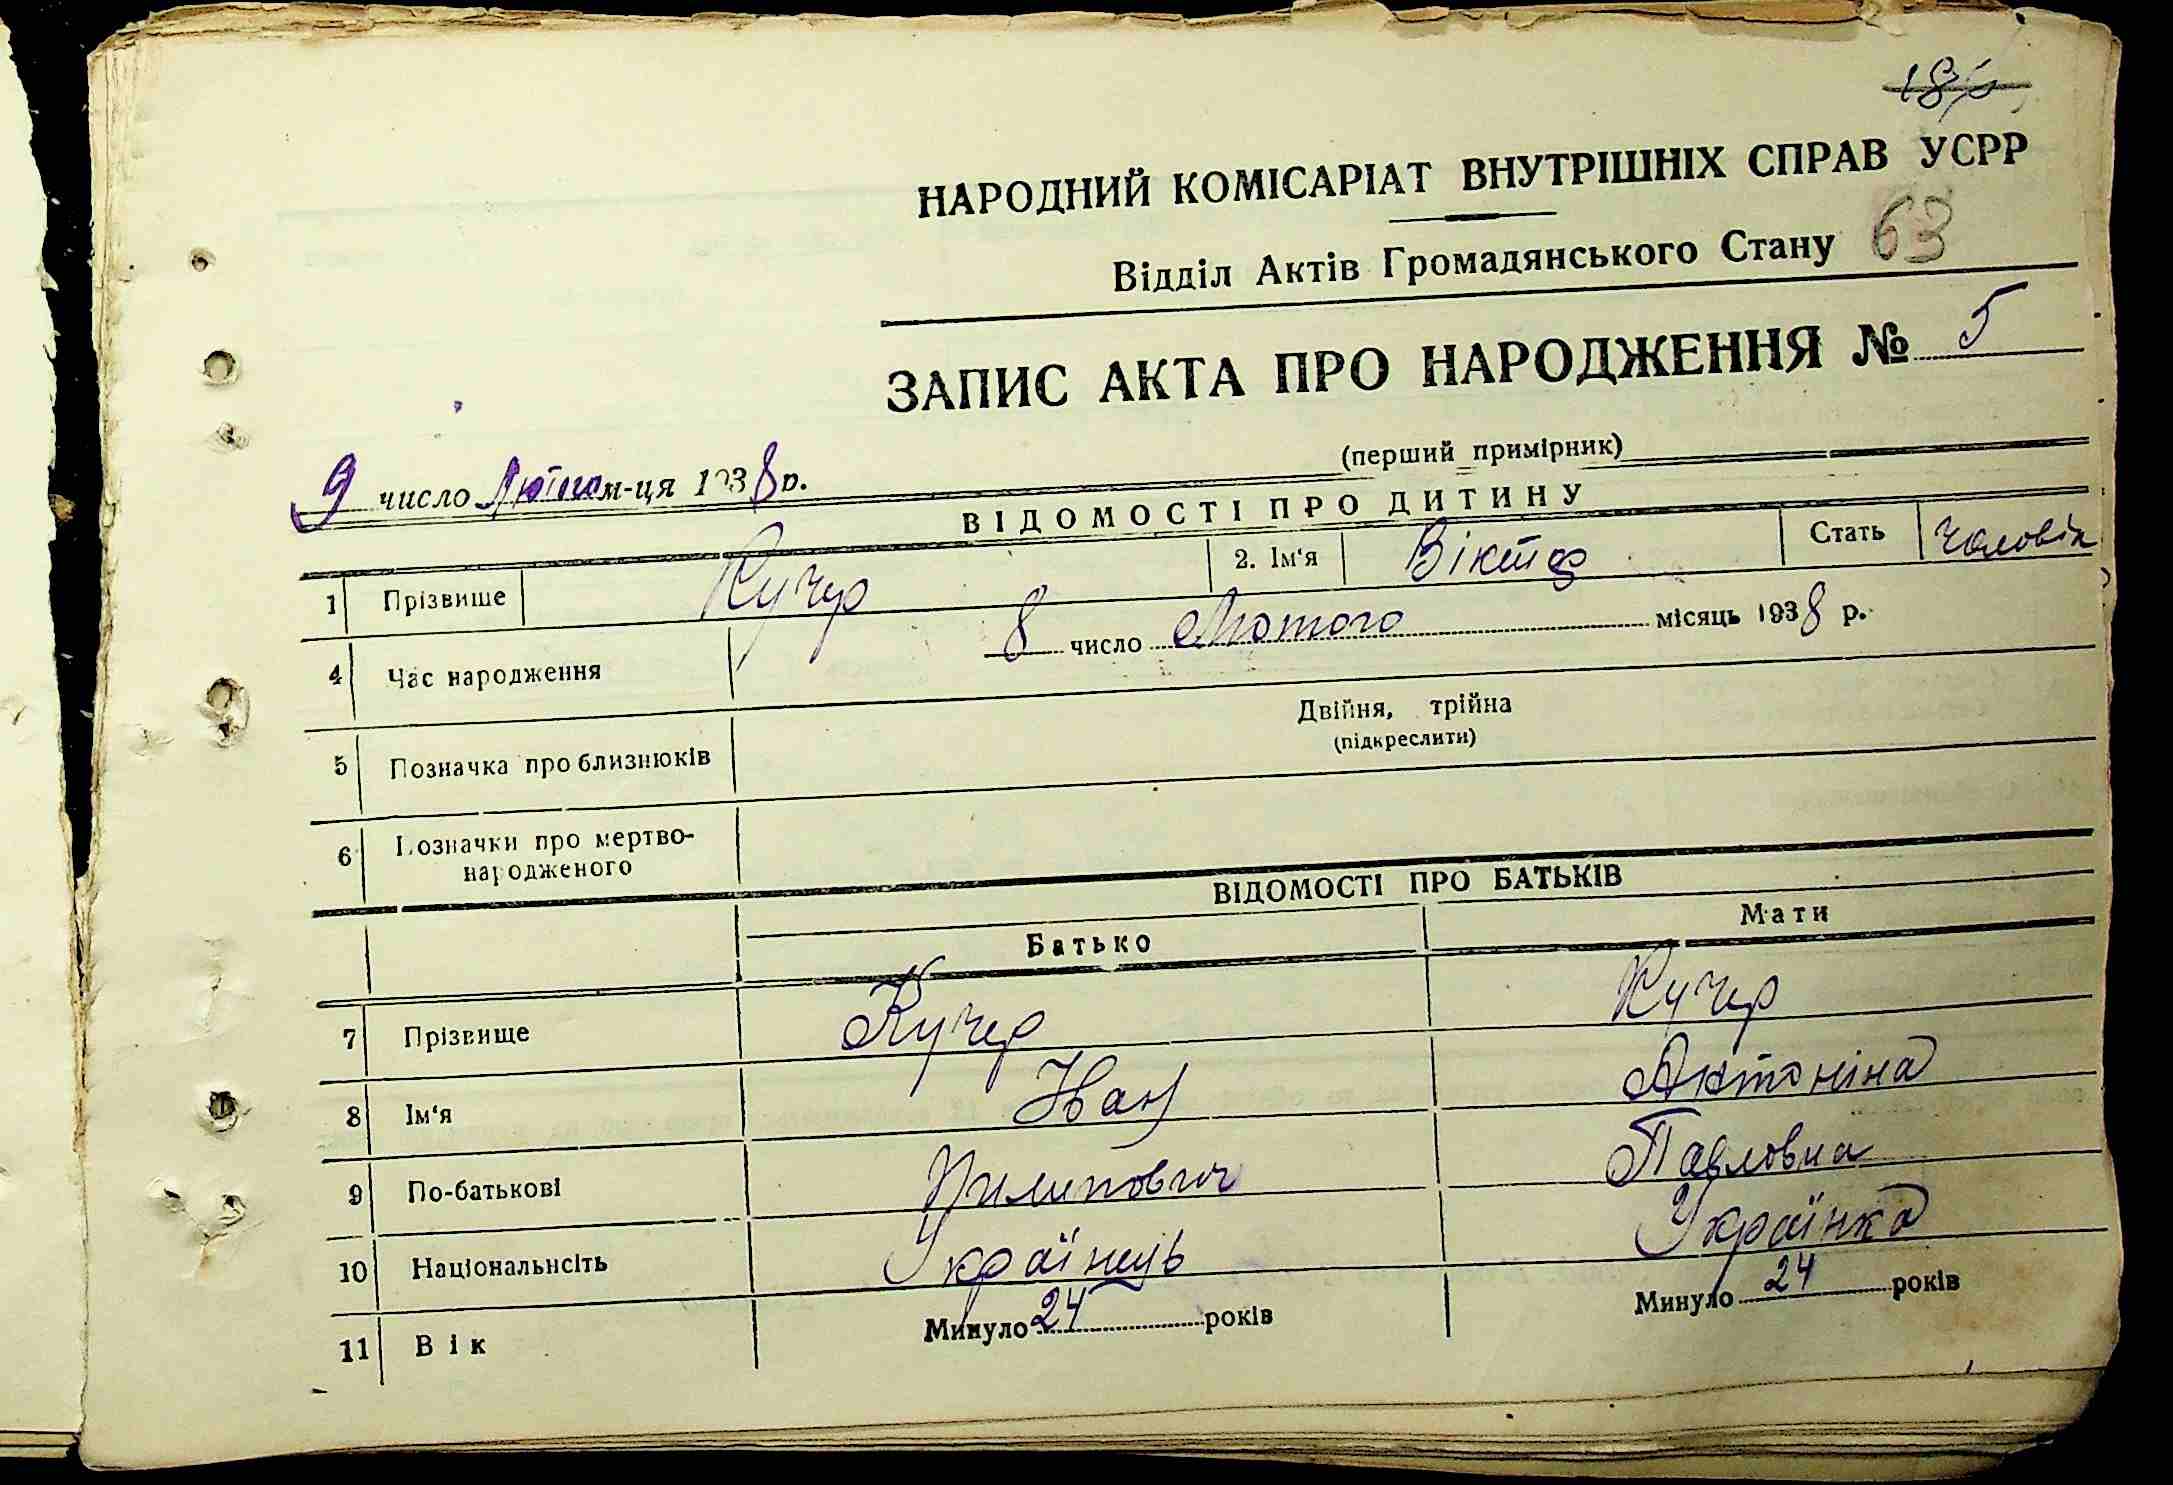 НАРОДНИЙ КОМІСАРІАТ ВНУТРІШНІХ СПРАВ УСРР
Відділ Актів Громадянського Стану 63
ЗАПИС АКТА ПРО НАРОДЖЕННЯ № 5
(перший примірник)
9 число Лютого м-ця 1938 р.
ВІДОМОСТІ ПРО ДИТИНУ
1 Прізвище Кучер 2. Ім‘я Віктор Стать Чоловіч
4 Час народження 8 число Лютого місяць 1938 р.
5 Позначка про близнюків Двійня, трійна
(підкреслити)
6 Позначки про мертво-
народженого
ВІДОМОСТІ ПРО БАТЬКІВ
Батько Мати
7 Прізвище Кучер Кучер
8 Ім‘я Іван Антоніна
9 По-батькові Пилипович Павловна
10 Національнсіть Українець Українка
11 Вік Минуло 24 років Минуло 24 років